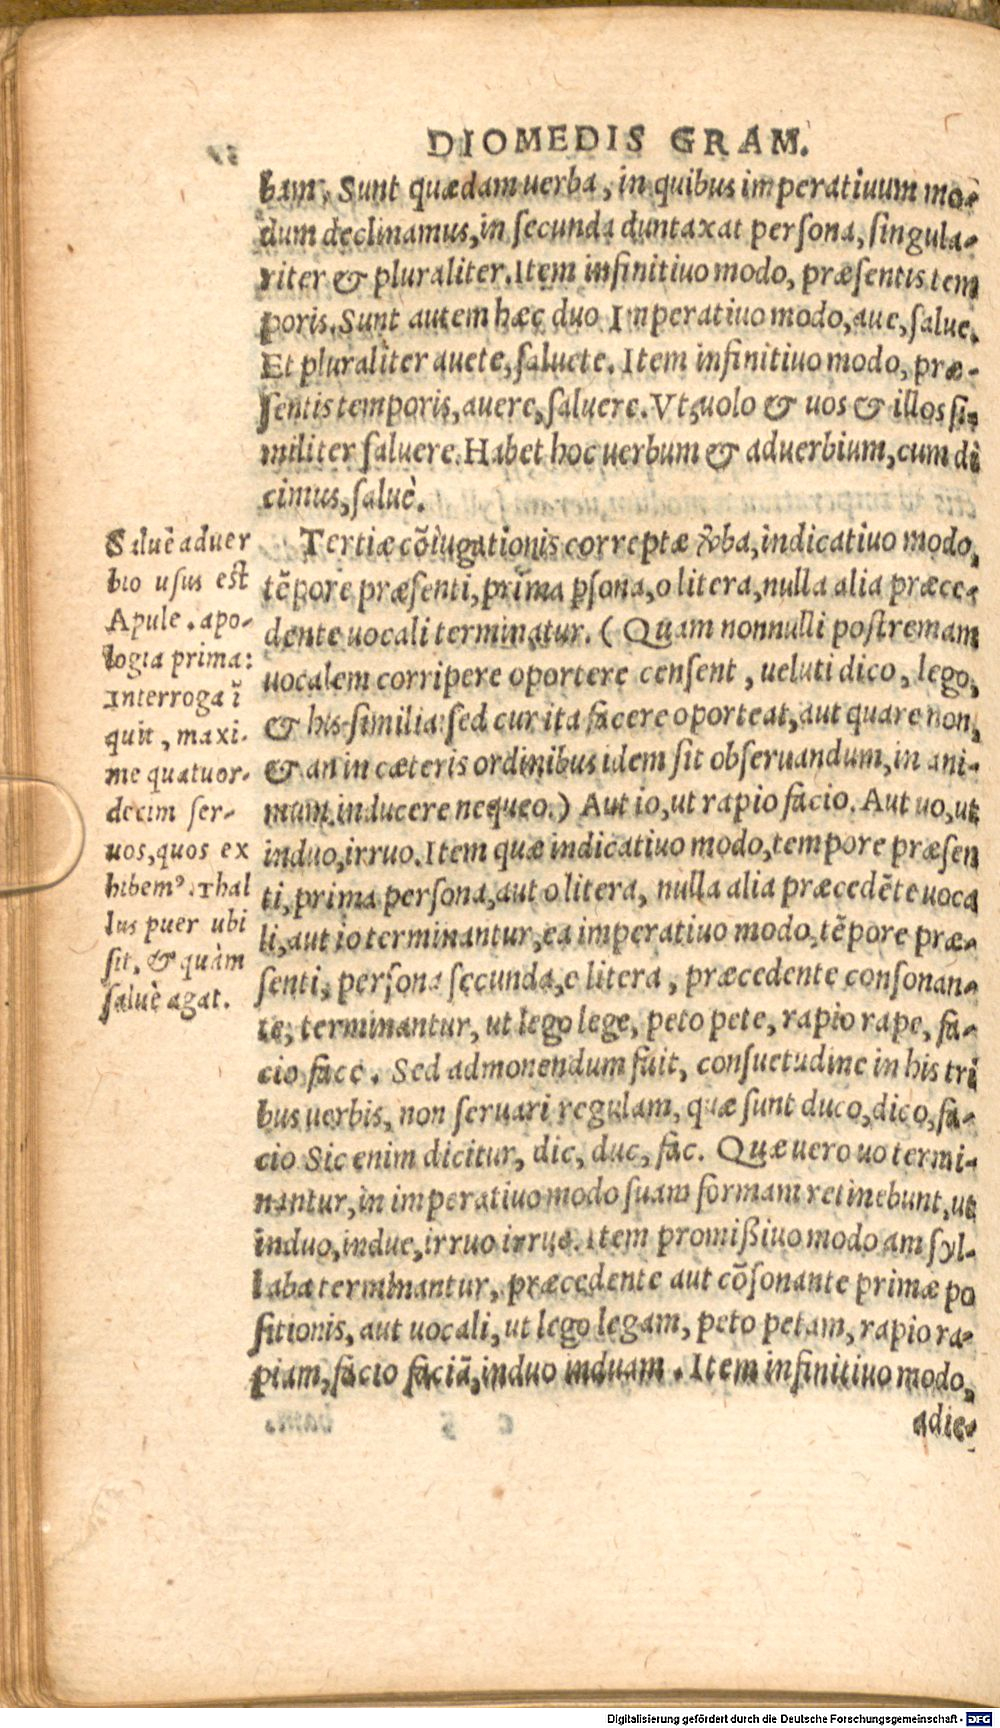 DIOMEDIS GRAM.
bam. Sunt quædam uerba, in quibus imperatiuum mo-
dum declinamus, in secunda duntaxat persona, singula-
riter & pluraliter. Item infinitiuo modo, præsentis tem
poris. Sunt autem hæc duo Imperatiuo modo, aue, salue.
Et pluraliter auete, saluete. Item infinitiuo modo, præ-
sentis temporis, auere, saluere. Vt, uolo & uos & illos si-
militer saluere. Habet hoc uerbum & aduerbium, cum di
cimus, saluè.
Tertiæ cõiugationis correptæ ꝟba, indicatiuo modo,
tẽpore præsenti, prima ꝑsona, o litera, nulla alia præce-
dente uocali terminatur. (Quam nonnulli postremam
uocalem corripere oportere censent, ueluti dico, lego,
& his similia: sed cur ita facere oporteat, aut quare non,
& an in cæteris ordinibus idem sit obseruandum, in ani-
mum inducere nequeo.) Aut io, ut rapio facio. Aut uo, ut
induo, irruo. Item quæ indicatiuo modo, tempore præsen
ti, prima persona, aut o litera, nulla alia præcedẽte uoca
li, aut io terminantur, ea imperatiuo modo, tẽpore præ-
senti, persona secunda, e litera, præcedente consonan-
te, terminantur, ut lego lege, peto pete, rapio rape, fa-
cio face. Sed admonendum fuit, consuetudine in his tri
bus uerbis, non seruari regulam, quæ sunt duco, dico, fa-
cio Sic enim dicitur, dic, duc, fac. Quæ uero uo termi-
nantur, in imperatiuo modo suam formam retinebunt, ut
induo, indue, irruo irrue. Item promißiuo modo am syl-
laba terminantur, præcedente aut cõsonante primæ po
sitionis, aut uocali, ut lego legam, peto petam, rapio ra-
piam, facio faciã, induo induam. Item infinitiuo modo,
adie-
Saluè aduer
bio usus est
Apule. apo-
logia prima:
Interroga ĩ
quit, maxi-
me quatuor-
decim ser-
uos, quos ex
hibemꝰ. Thal
lus puer ubi
sit, & quàm
saluè agat.
Digitalisierung gefördert durch die Deutsche Forschungsgemeinschaft - DFG